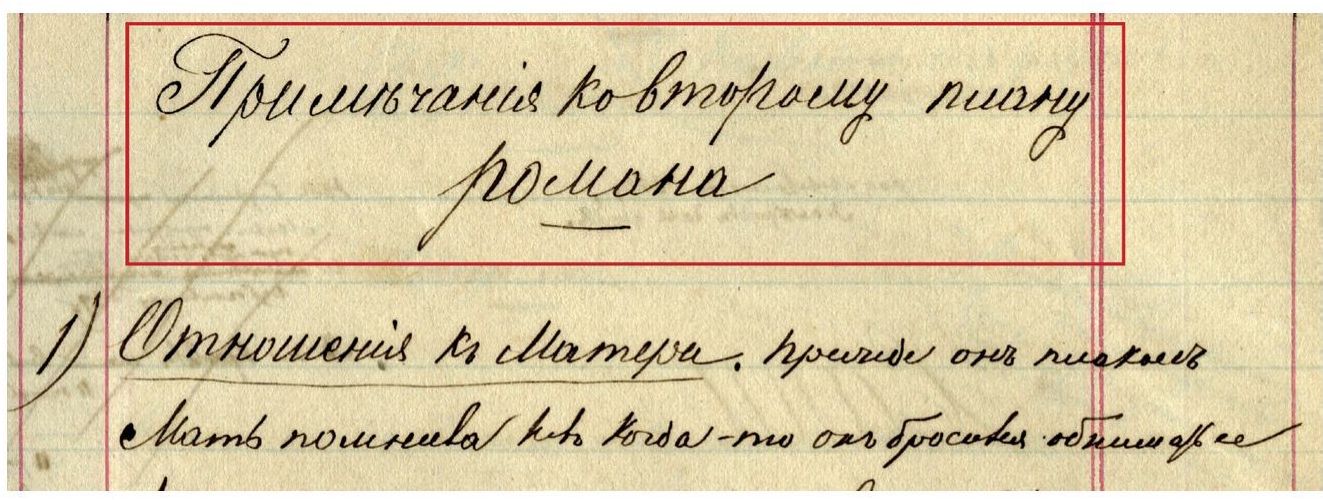 Примѣчанія ко второму плану
романа
1) Отношенія къ Матери. прежде онъ плакалъ
Мать помнила какъ когда-то онъ бросился обнимать ее